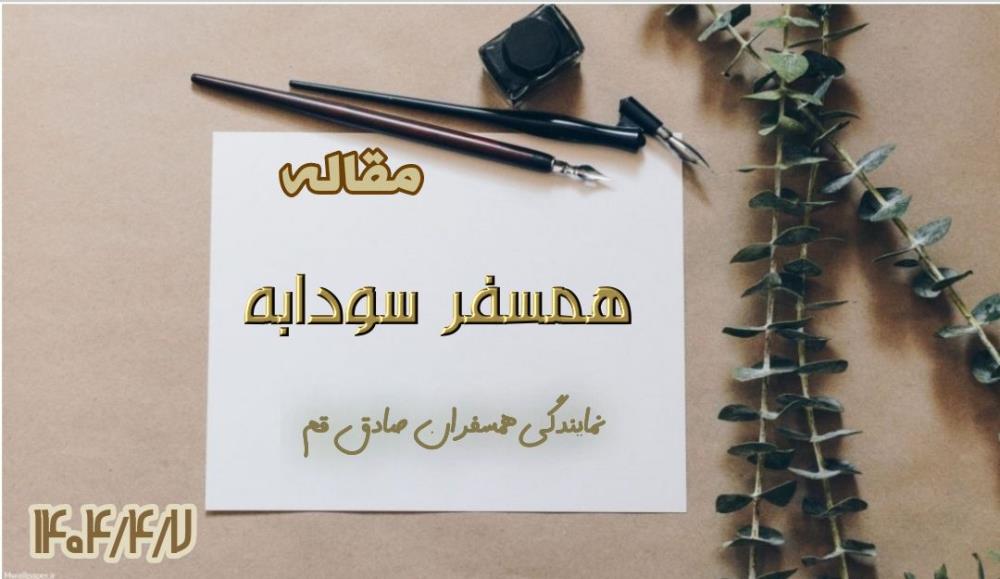 مقاله
همسفر سودابه
نمایندگی همسفران صادق قم
۱۴۰۴/۴/۷